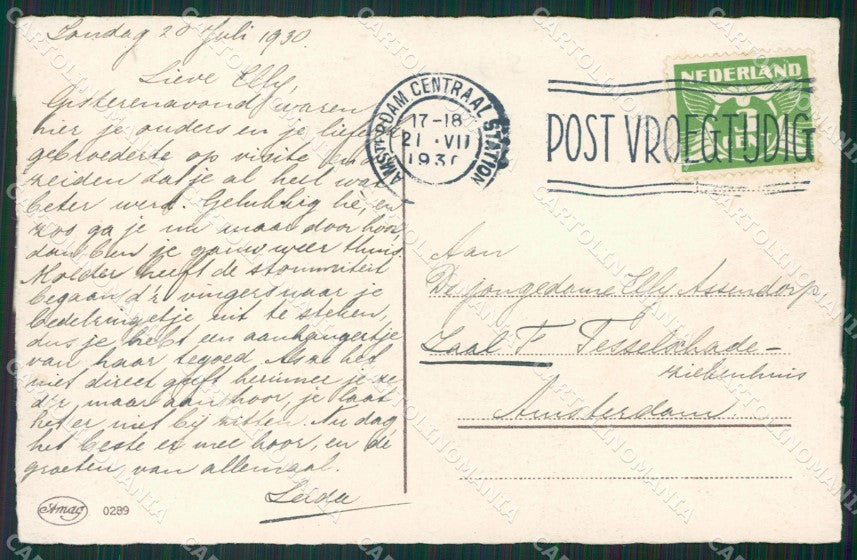 Zondag 20 Juli 1930.
Lieve Elly,
Gisterenavond waren
hier je ouders en je liefste
gebroederte op visite en
zeiden dat je al heel wat
beter werd. Gelukkig hè, en
zoo ga je nu maar door hoor
dan ben je gauw weer thuis.
Molder heeft de stommiteit
begaan d'r vingers naar je
bedelringetje uit te steken,
dus je hebt een aanhangertje
van haar tegoed. Als ze het
niet direct geeft herinner je ze
d'r maar aan hoor, je laat
het er niet bij zitten. Nu dag
het beste er mee hoor, en de
groeten van allemaal.
Leida
Amag 0289
AMSTERDAM CENTRAAL STATION
17-18
21 VII
1930
POST VROEGTIJDIG
NEDERLAND
3
CENT
Aan
De jongedame Elly Assendorp
Zaal F Tesselschade-
ziekenhuis
Amsterdam
CARTOLINOMANIA